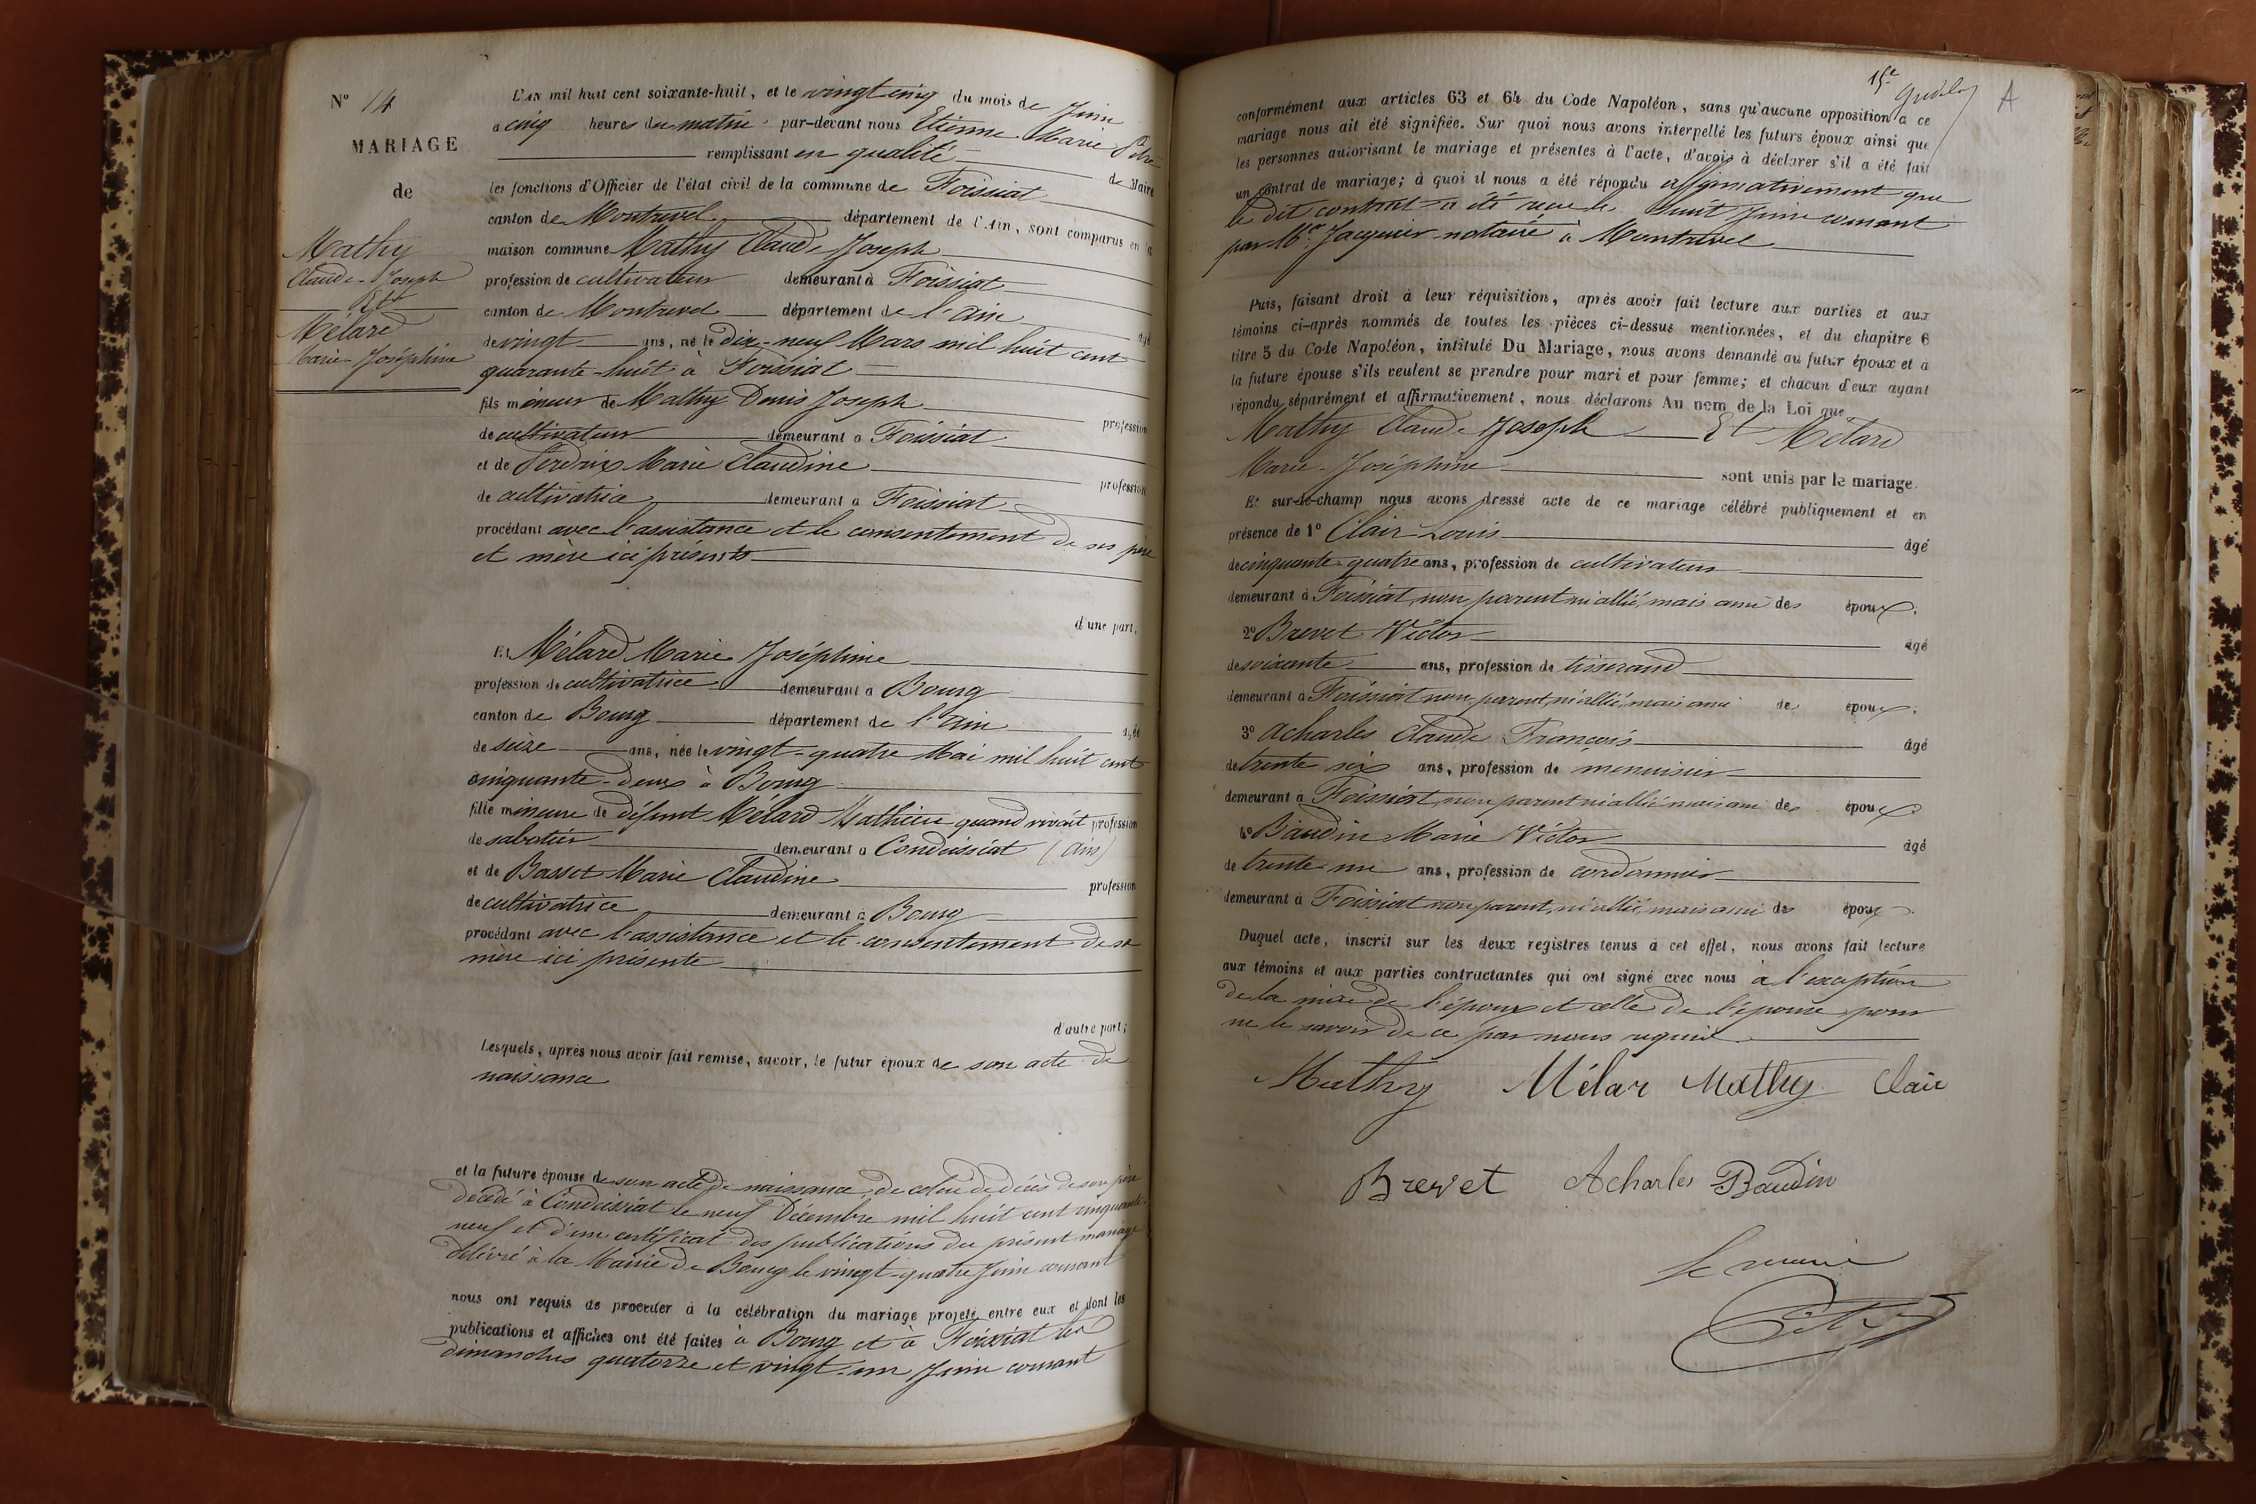 N° 14
MARIAGE
de
Mathy
Claude-Joseph
Et
Mélard
Marie-Joséphine
L'an mil huit cent soixante-huit, et le vingt cinq du mois de Juin
à cinq heures du matin par-devant nous Etienne Marie
remplissant en qualité de Maire
les fonctions d'Officier de l'état civil de la commune de Foissiat
canton de Montrevel département de l'Ain, sont comparus en la
maison commune Mathy Claude Joseph
profession de cultivateur demeurant à Foissiat
canton de Montrevel département de l'ain âgé
de vingt ans, né le dix-neuf Mars mil huit cent
quarante-huit à Foissiat
fils mineur de Mathy Denis Joseph profession
de cultivateur demeurant à Foissiat
et de Perdrix Marie Claudine profession
de cultivatrice demeurant à Foissiat
procédant avec l'assistance et le consentement de ses père
et mère ici présents
d'une part,
Et Mélard Marie Joséphine
profession de cultivatrice demeurant à Bourg
canton de Bourg département de l'ain âgée
de seize ans, née le vingt-quatre Mai mil huit cent
cinquante-deux à Bourg
fille mineure de défunt Mélard Mathieu quand vivait profession
de sabotier demeurant à Condeissiat (ain)
et de Basset Marie Claudine profession
de cultivatrice demeurant à Bourg
procédant avec l'assistance et le consentement de sa
mère ici présente
d'autre part;
Lesquels, après nous avoir fait remise, savoir, le futur époux de son acte de
naissance
et la future épouse de son acte de naissance, de celui de décès de son père
décédé à Condeissiat le neuf Décembre mil huit cent cinquante-
neuf et d'un certificat des publications du présent mariage
délivré à la Mairie de Bourg le vingt-quatre Juin courant
nous ont requis de procéder à la célébration du mariage projeté entre eux et dont les
publications et affiches ont été faites à Bourg et à Foissiat les
dimanches quatorze et vingt-un Juin courant
15e
A
conformément aux articles 63 et 64 du Code Napoléon, sans qu'aucune opposition à ce
mariage nous ait été signifiée. Sur quoi nous avons interpellé les futurs époux ainsi que
les personnes autorisant le mariage et présentes à l'acte, d'avoir à déclarer s'il a été fait
un contrat de mariage; à quoi il nous a été répondu affirmativement que
le dit contrat a été reçu le huit Juin courant
par Me Jacquier notaire à Montrevel
Puis, faisant droit à leur réquisition, après avoir fait lecture aux parties et aux
témoins ci-après nommés de toutes les pièces ci-dessus mentionnées, et du chapitre 6
titre 5 du Code Napoléon, intitulé Du Mariage, nous avons demandé au futur époux et à
la future épouse s'ils veulent se prendre pour mari et pour femme; et chacun d'eux ayant
répondu séparément et affirmativement, nous déclarons Au nom de la Loi que
Mathy Claude Joseph Et Mélard
Marie-Joséphine sont unis par le mariage.
Et sur-le-champ nous avons dressé acte de ce mariage célébré publiquement et en
présence de 1° Clair Louis âgé
de cinquante-quatre ans, profession de cultivateur
demeurant à Foissiat, non parent ni allié, mais ami des époux.
2° Brevet Victor âgé
de soixante ans, profession de tisserand
demeurant à Foissiat non parent, ni allié, mais ami de époux.
3° Acharles Claude François âgé
de trente six ans, profession de menuisier
demeurant à Foissiat, non parent ni allié mais ami des époux
4° Baudin Marie Victor âgé
de trente un ans, profession de cordonnier
demeurant à Foissiat non parent, ni allié, mais ami des époux
Duquel acte, inscrit sur les deux registres tenus à cet effet, nous avons fait lecture
aux témoins et aux parties contractantes qui ont signé avec nous à l'exception
de la mère de l'époux et celle de l'épouse pour
ne le savoir de ce par nous requis
Mathy Mélar Mathy Clair
Brevet Acharles Baudin
le maire